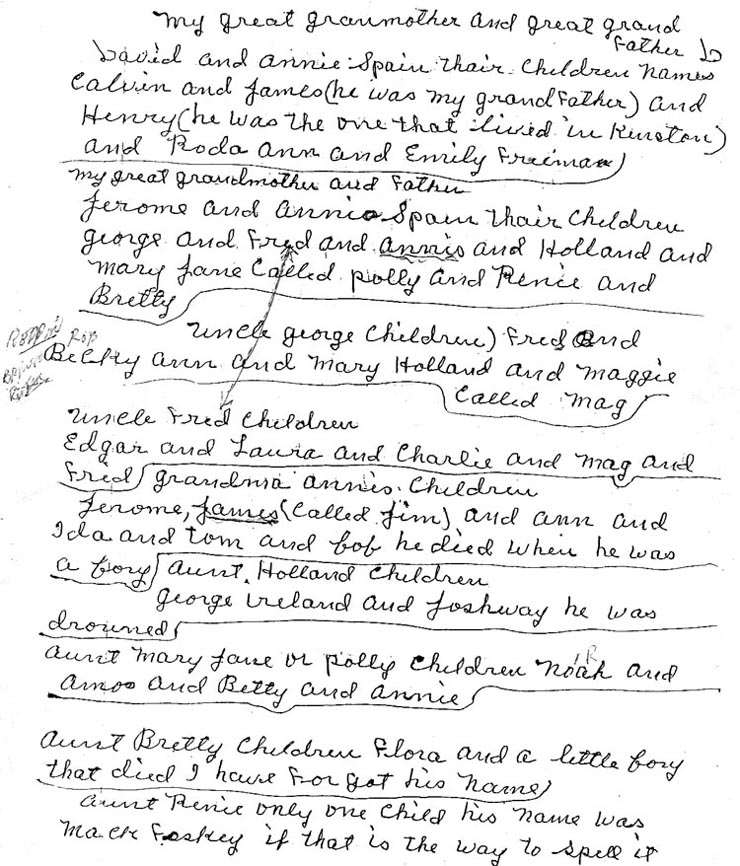 my great granmother and great grand
Father
David and annie Spain thair Children names
Calvin and James (he was my grandFather) and
Henry (he was the one that lived in Kinston)
and Roda ann and Emily Freiman)
my great grandmother and Father
Jerome and annie Spain thair Children
george and Fred and annis and Holland and
mary Jane Called polly and Renie and
Bretty
uncle george Children) Fred and
Roy
Becky ann and Mary Holland and maggie
Called mag
uncle Fred Children
Edgar and Laura and Charlie and mag and
Fred grandma annis. Children
Jerome, James (Called Jim) and ann and
Ida and tom and bob he died when he was
a bory aunt. Holland Children
george ireland and Joshway he was
drouned
aunt mary Jane or polly Children Noah and
amos and Betty and annie
aunt Bretty Children Flora and a little bory
that died I have For got his name)
aunt Renie only one Child his name was
Mack Foskey if that is the way to spell it